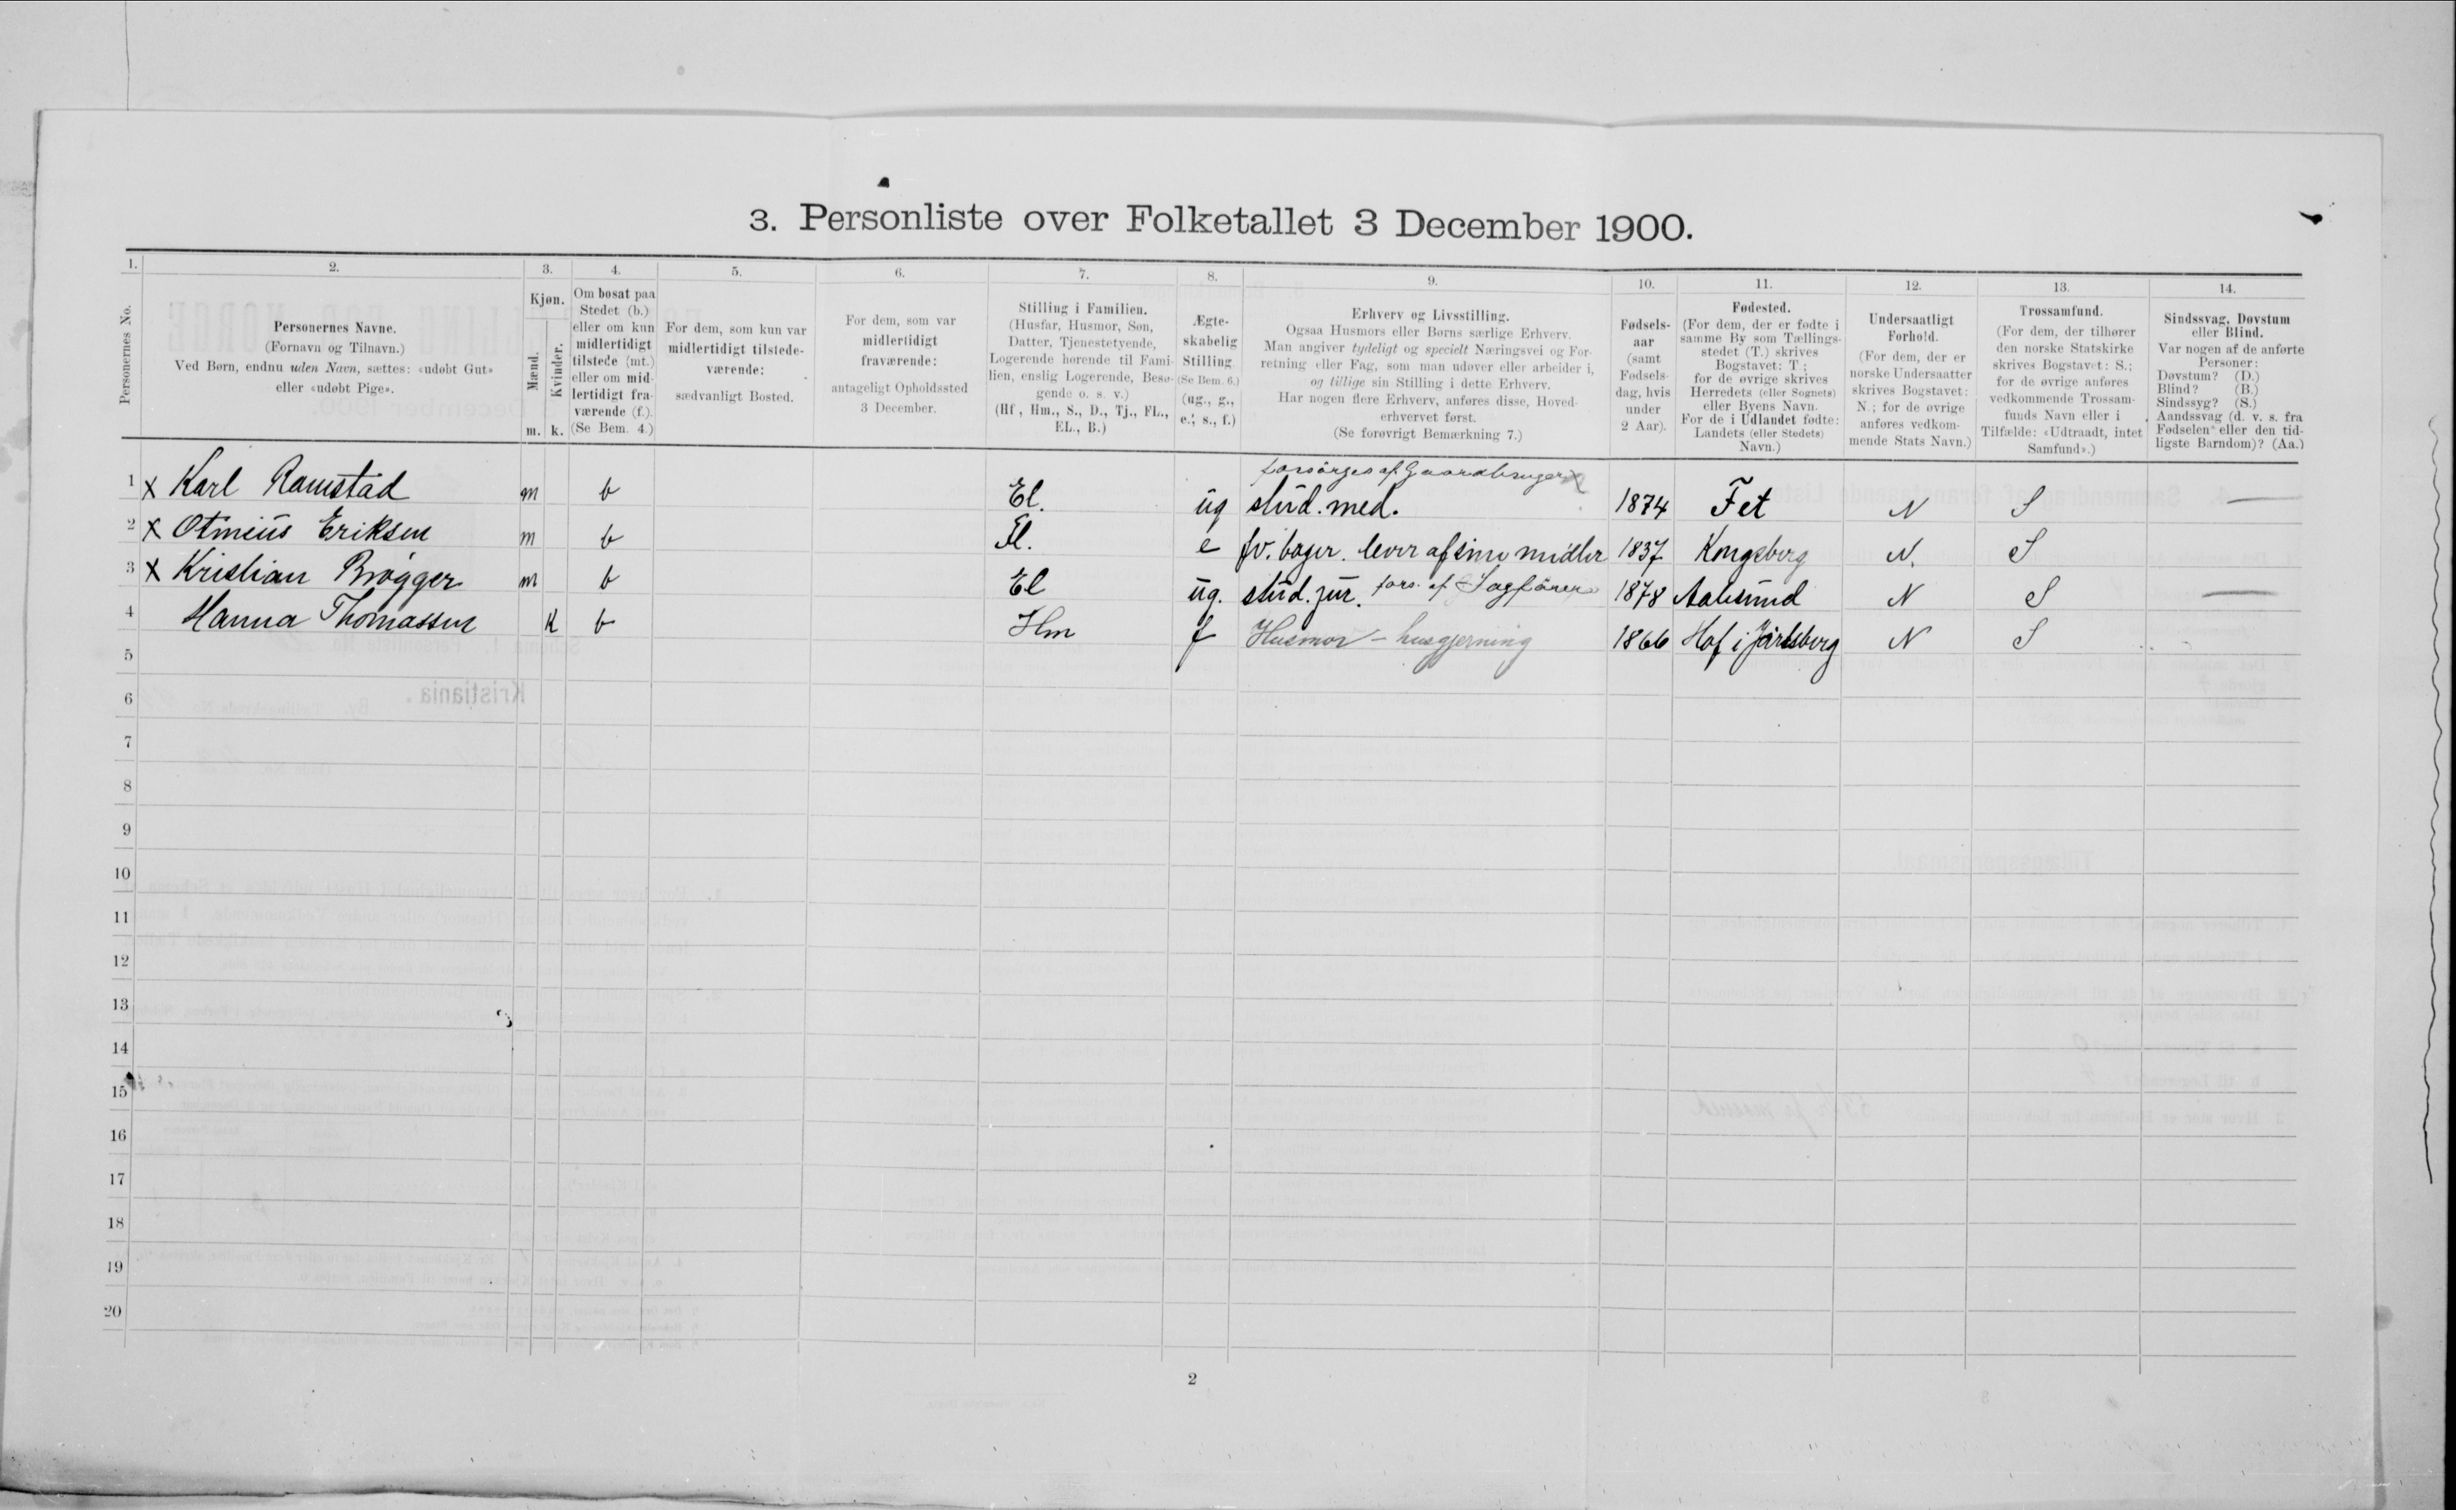 3. Personliste over Folketallet 3 December 1900.
1. 2. 3. 4. 5. 6. 7. 8. 9. 10. 11. 12. 13. 14.
Personernes No.
Personernes Navne.
(Fornavn og Tilnavn.)
Ved Børn, endnu uden Navn, sættes: «udøbt Gut»
eller «udøbt Pige».
Kjøn.
Mænd.
Kvinder.
m. k.
Om bosat paa
Stedet (b.)
eller om kun
midlertidigt
tilstede (mt.)
eller om mid-
lertidigt fra-
værende (f.).
(Se Bem. 4.)
For dem, som kun var
midlertidigt tilstede-
værende:
sædvanligt Bosted.
For dem, som var
midlertidigt
fraværende:
antageligt Opholdssted
3 December.
Stilling i Familien.
(Husfar, Husmor, Søn,
Datter, Tjenestetyende,
Logerende hørende til Fami-
lien, enslig Logerende, Besø-
gende o. s. v.)
(Hf, Hm., S., D., Tj., FL.,
EL., B.)
Ægte-
skabelig
Stilling
(Se Bem. 6.)
(ug., g.,
e., s., f.)
Erhverv og Livsstilling.
Ogsaa Husmors eller Børns særlige Erhverv.
Man angiver tydeligt og specielt Næringsvei og For-
retning eller Fag, som man udøver eller arbeider i,
og tillige sin Stilling i dette Erhverv.
Har nogen flere Erhverv, anføres disse, Hoved-
erhvervet først.
(Se forøvrigt Bemærkning 7.)
Fødsels-
aar
(samt
Fødsels-
dag, hvis
under
2 Aar).
Fødested.
(For dem, der er fødte i
samme By som Tællings-
stedet (T.) skrives
Bogstavet: T;
for de øvrige skrives
Herredets (eller Sognets)
eller Byens Navn.
For de i Udlandet fødte:
Landets (eller Stedets)
Navn.)
Undersaatligt
Forhold.
(For dem, der er
norske Undersaatter
skrives Bogstavet:
N.; for de øvrige
anføres vedkom-
mende Stats Navn.)
Trossamfund.
(For dem, der tilhører
den norske Statskirke
skrives Bogstavet: S.;
for de øvrige anføres
vedkommende Trossam-
funds Navn eller i
Tilfælde: «Udtraadt, intet
Samfund».)
Sindssvag, Døvstum
eller Blind.
Var nogen af de anførte
Personer:
Døvstum? (D.)
Blind? (B.)
Sindssyg? (S.)
Aandssvag (d. v. s. fra
Fødselen eller den tid-
ligste Barndom)? (Aa.)
forsörges af Gaardbruger
1 x Karl Ramstad m b El. ug stud. med. 1874 Fet N S —
2 x Otmeus Eriksen m b El. e fv. bager. lever af sine midler 1837 Kongsberg N. S
3 x Kristian Brögger m b El ug. stud. jur. fors. af Sagförer 1878 Aalesund N S —
4 Hanna Thomassen k b Hm f Husmor - husgjerning 1866 Hof i Jarlsberg N S
5
6
7
8
9
10
11
12
13
14
15
16
17
18
19
20
2